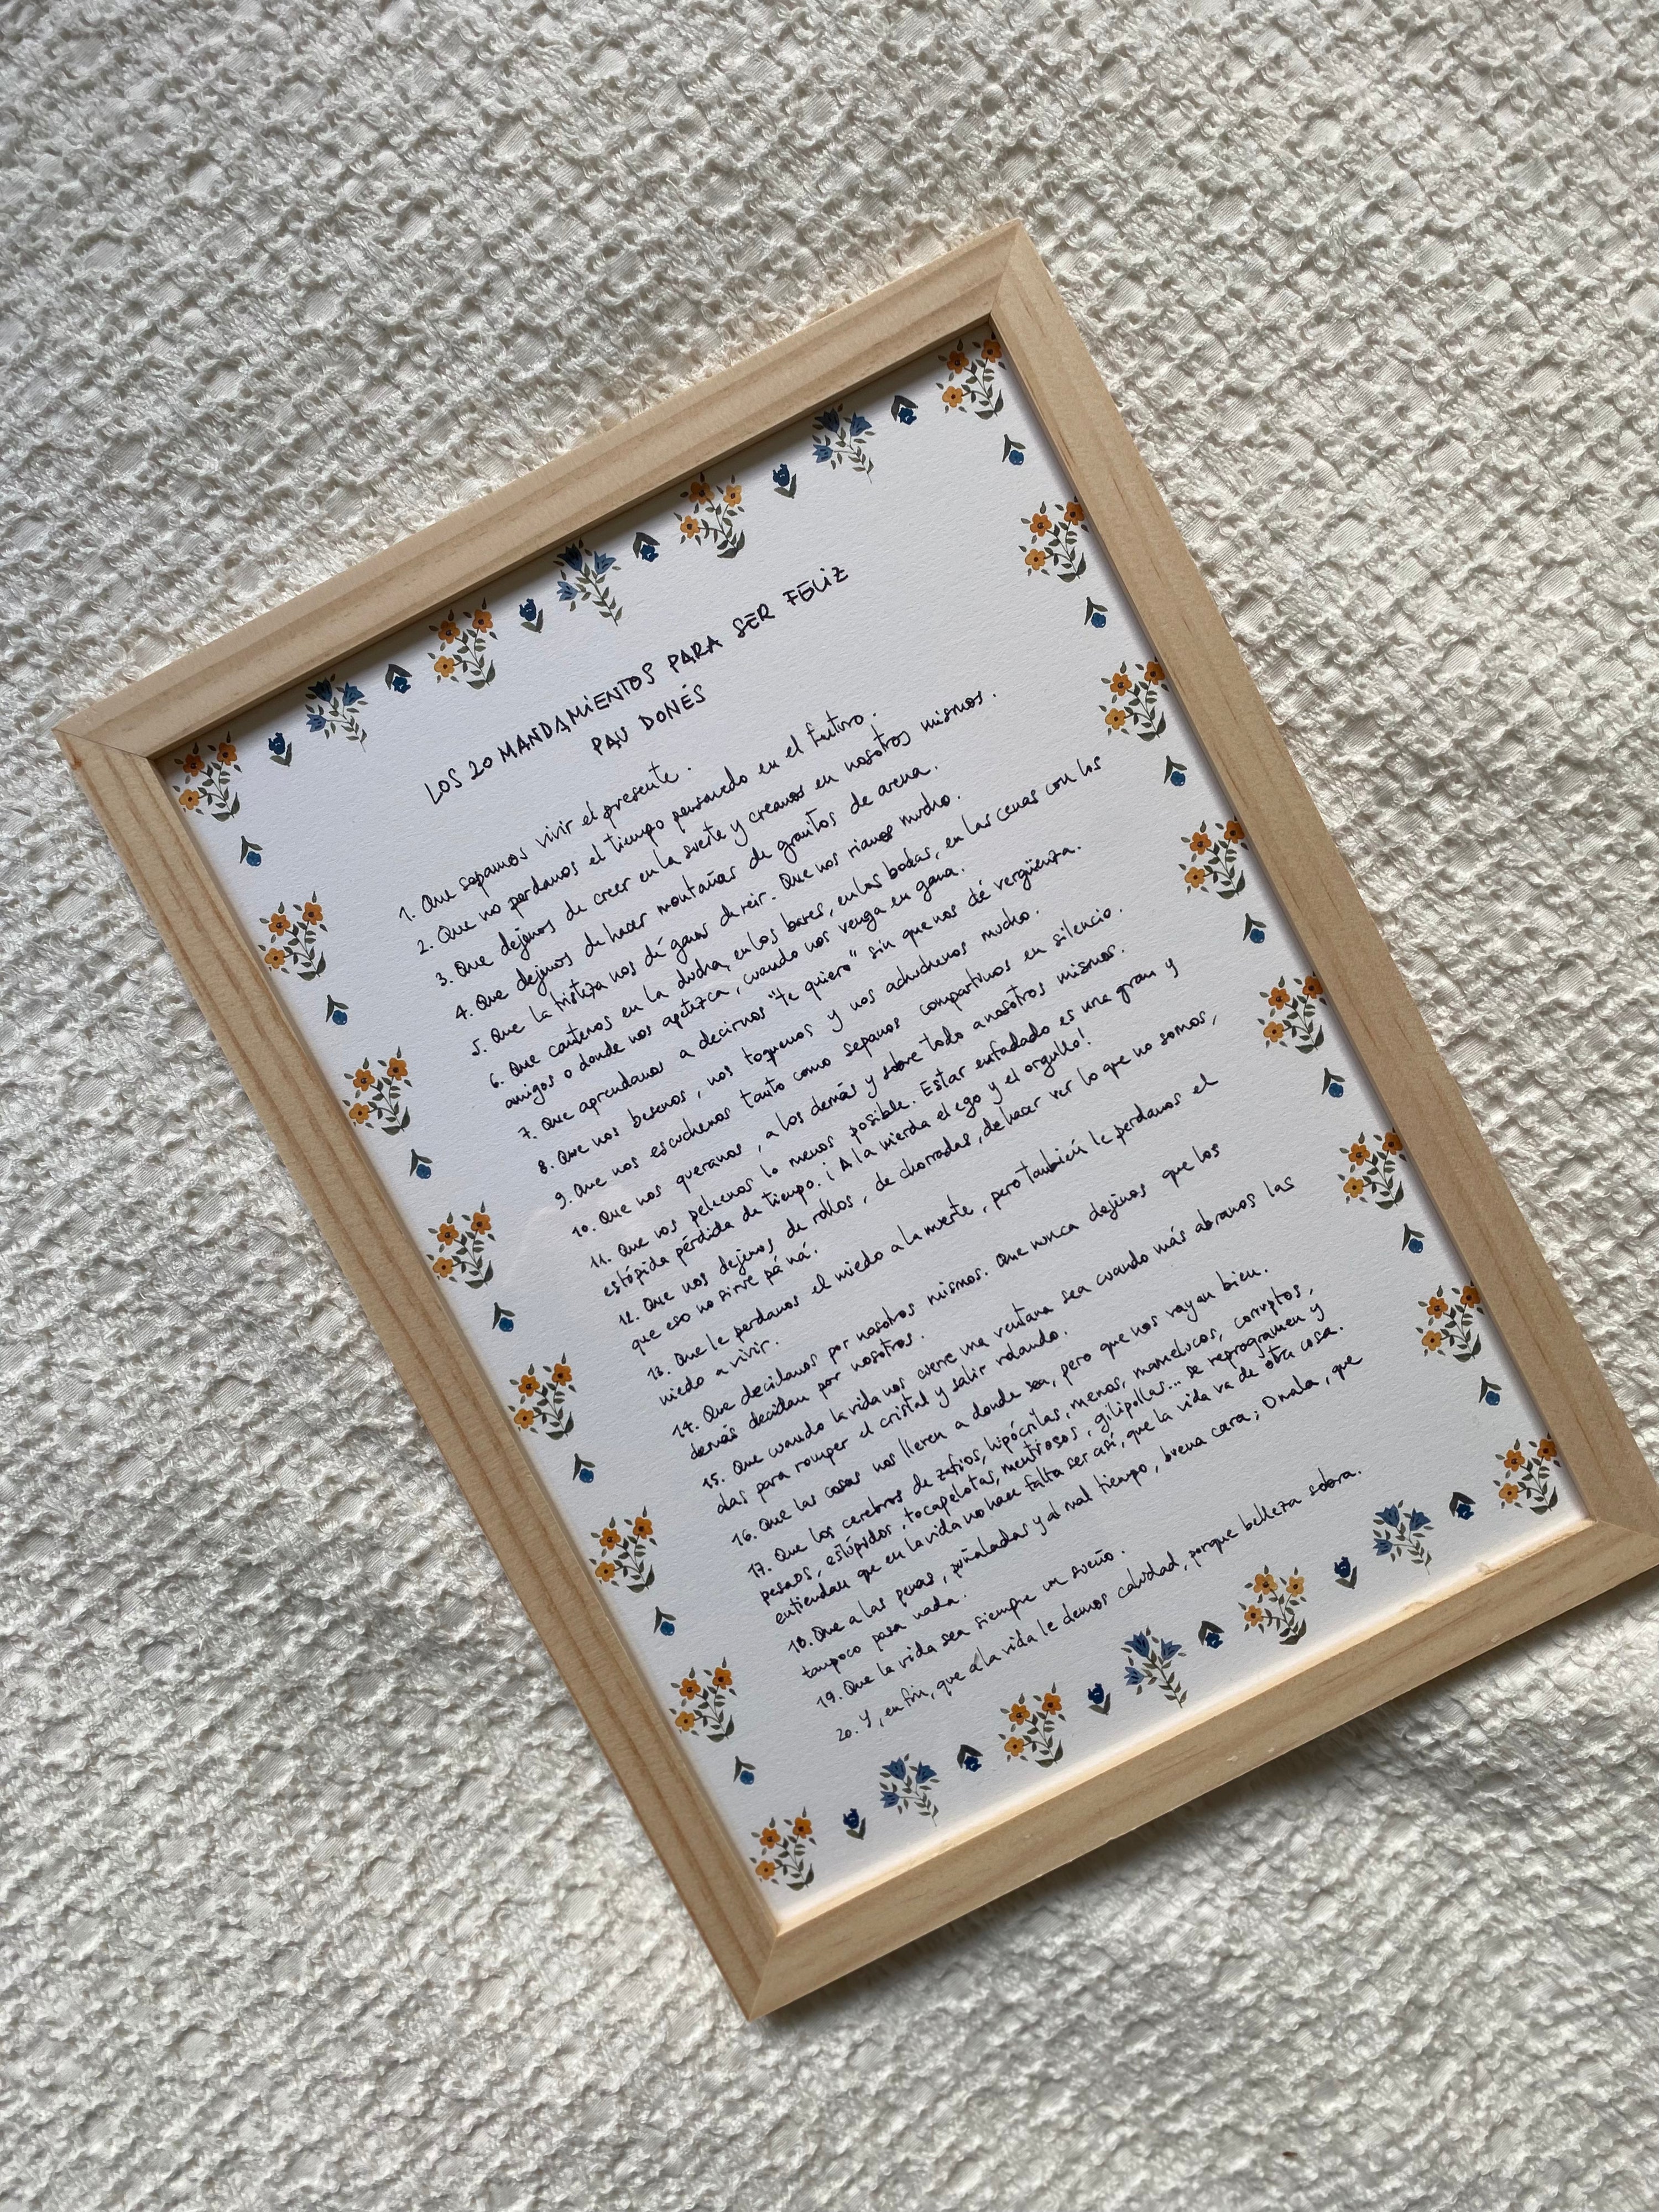 LOS 20 MANDAMIENTOS PARA SER FELIZ
PAU DONÉS
1. Que sepamos vivir el presente.
2. Que no perdamos el tiempo pensando en el futuro.
3. Que dejemos de creer en la suerte y creamos en nosotros mismos.
4. Que dejemos de hacer montañas de granitos de arena.
5. Que la tristeza nos dé ganas de reir. Que nos riamos mucho.
6. Que cantemos en la ducha, en los bares, en las bodas, en las cenas con los
amigos o donde nos apetezca, cuando nos venga en gana.
7. Que aprendamos a decirnos "te quiero" sin que nos dé vergüenza.
8. Que nos besemos, nos toquemos y nos achuchemos mucho.
9. Que nos escuchemos tanto como sepamos compartirnos en silencio.
10. Que nos queramos, a los demás y sobre todo a nosotros mismos.
11. Que nos peleemos lo menos posible. Estar enfadado es una gran y
estúpida pérdida de tiempo. ¡A la mierda el ego y el orgullo!
12. Que nos dejemos de rollos, de chorradas, de hacer ver lo que no somos,
que eso no sirve pá ná.
13. Que le perdamos el miedo a la muerte, pero también le perdamos el
miedo a vivir.
14. Que decidamos por nosotros mismos. Que nunca dejemos que los
demás decidan por nosotros.
15. Que cuando la vida nos cierre una ventana sea cuando más abramos las
alas para romper el cristal y salir volando.
16. Que las cosas nos lleven a donde sea, pero que nos vayan bien.
17. Que los cerebros de zafios, hipócritas, memos, mamelucos, corruptos,
pesaos, estúpidos, tocapelotas, mentirosos, gilipollas... se reprogramen y
entiendan que en la vida no hace falta ser así, que la vida va de otra cosa.
18. Que a las penas, puñaladas y al mal tiempo, buena cara; O mala, que
tampoco pasa nada.
19. Que la vida sea siempre un sueño.
20. Y, en fin, que a la vida le demos calidad, porque belleza sobra.